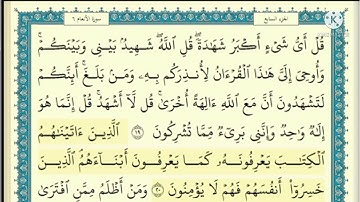 الجزء السابع سورة الأنعام ٦
قُلْ أَىُّ شَىْءٍ أَكْبَرُ شَهَٰدَةً ۖ قُلِ ٱللَّهُ ۖ شَهِيدٌۢ بَيْنِى وَبَيْنَكُمْ ۚ
وَأُوحِىَ إِلَىَّ هَٰذَا ٱلْقُرْءَانُ لِأُنذِرَكُم بِهِۦ وَمَنۢ بَلَغَ ۚ أَئِنَّكُمْ
لَتَشْهَدُونَ أَنَّ مَعَ ٱللَّهِ ءَالِهَةً أُخْرَىٰ ۚ قُل لَّآ أَشْهَدُ ۚ قُلْ إِنَّمَا هُوَ
إِلَٰهٌ وَٰحِدٌ وَإِنَّنِى بَرِىٓءٌ مِّمَّا تُشْرِكُونَ ١٩ ٱلَّذِينَ ءَاتَيْنَٰهُمُ
ٱلْكِتَٰبَ يَعْرِفُونَهُۥ كَمَا يَعْرِفُونَ أَبْنَآءَهُمُ ٱلَّذِينَ
خَسِرُوٓا۟ أَنفُسَهُمْ فَهُمْ لَا يُؤْمِنُونَ ٢٠ وَمَنْ أَظْلَمُ مِمَّنِ ٱفْتَرَىٰ